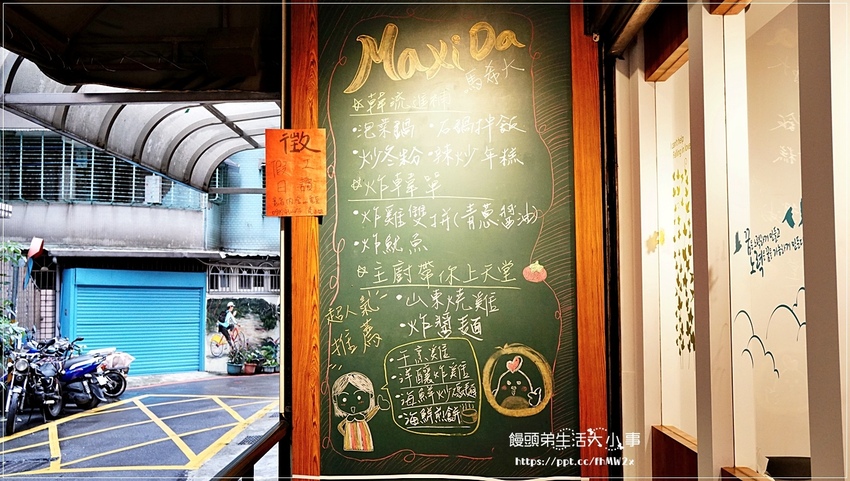 MaxiDa
馬薟大
韓流進補
•泡菜鍋 •石鍋拌飯
•炒冬粉 •辣炒年糕
炸群單
•炸雞雙拼(青蔥醬油)
•炸魷魚
主廚帶你上天堂
•山東燒雞
•炸醬麵
超人氣
推薦
•干烹雞
•洋釀炸雞
•海鮮炒碼麵
•海鮮煎餅
徵
假日
工讀
饅頭弟生活大小事
https://ppt.cc/fhMW2x